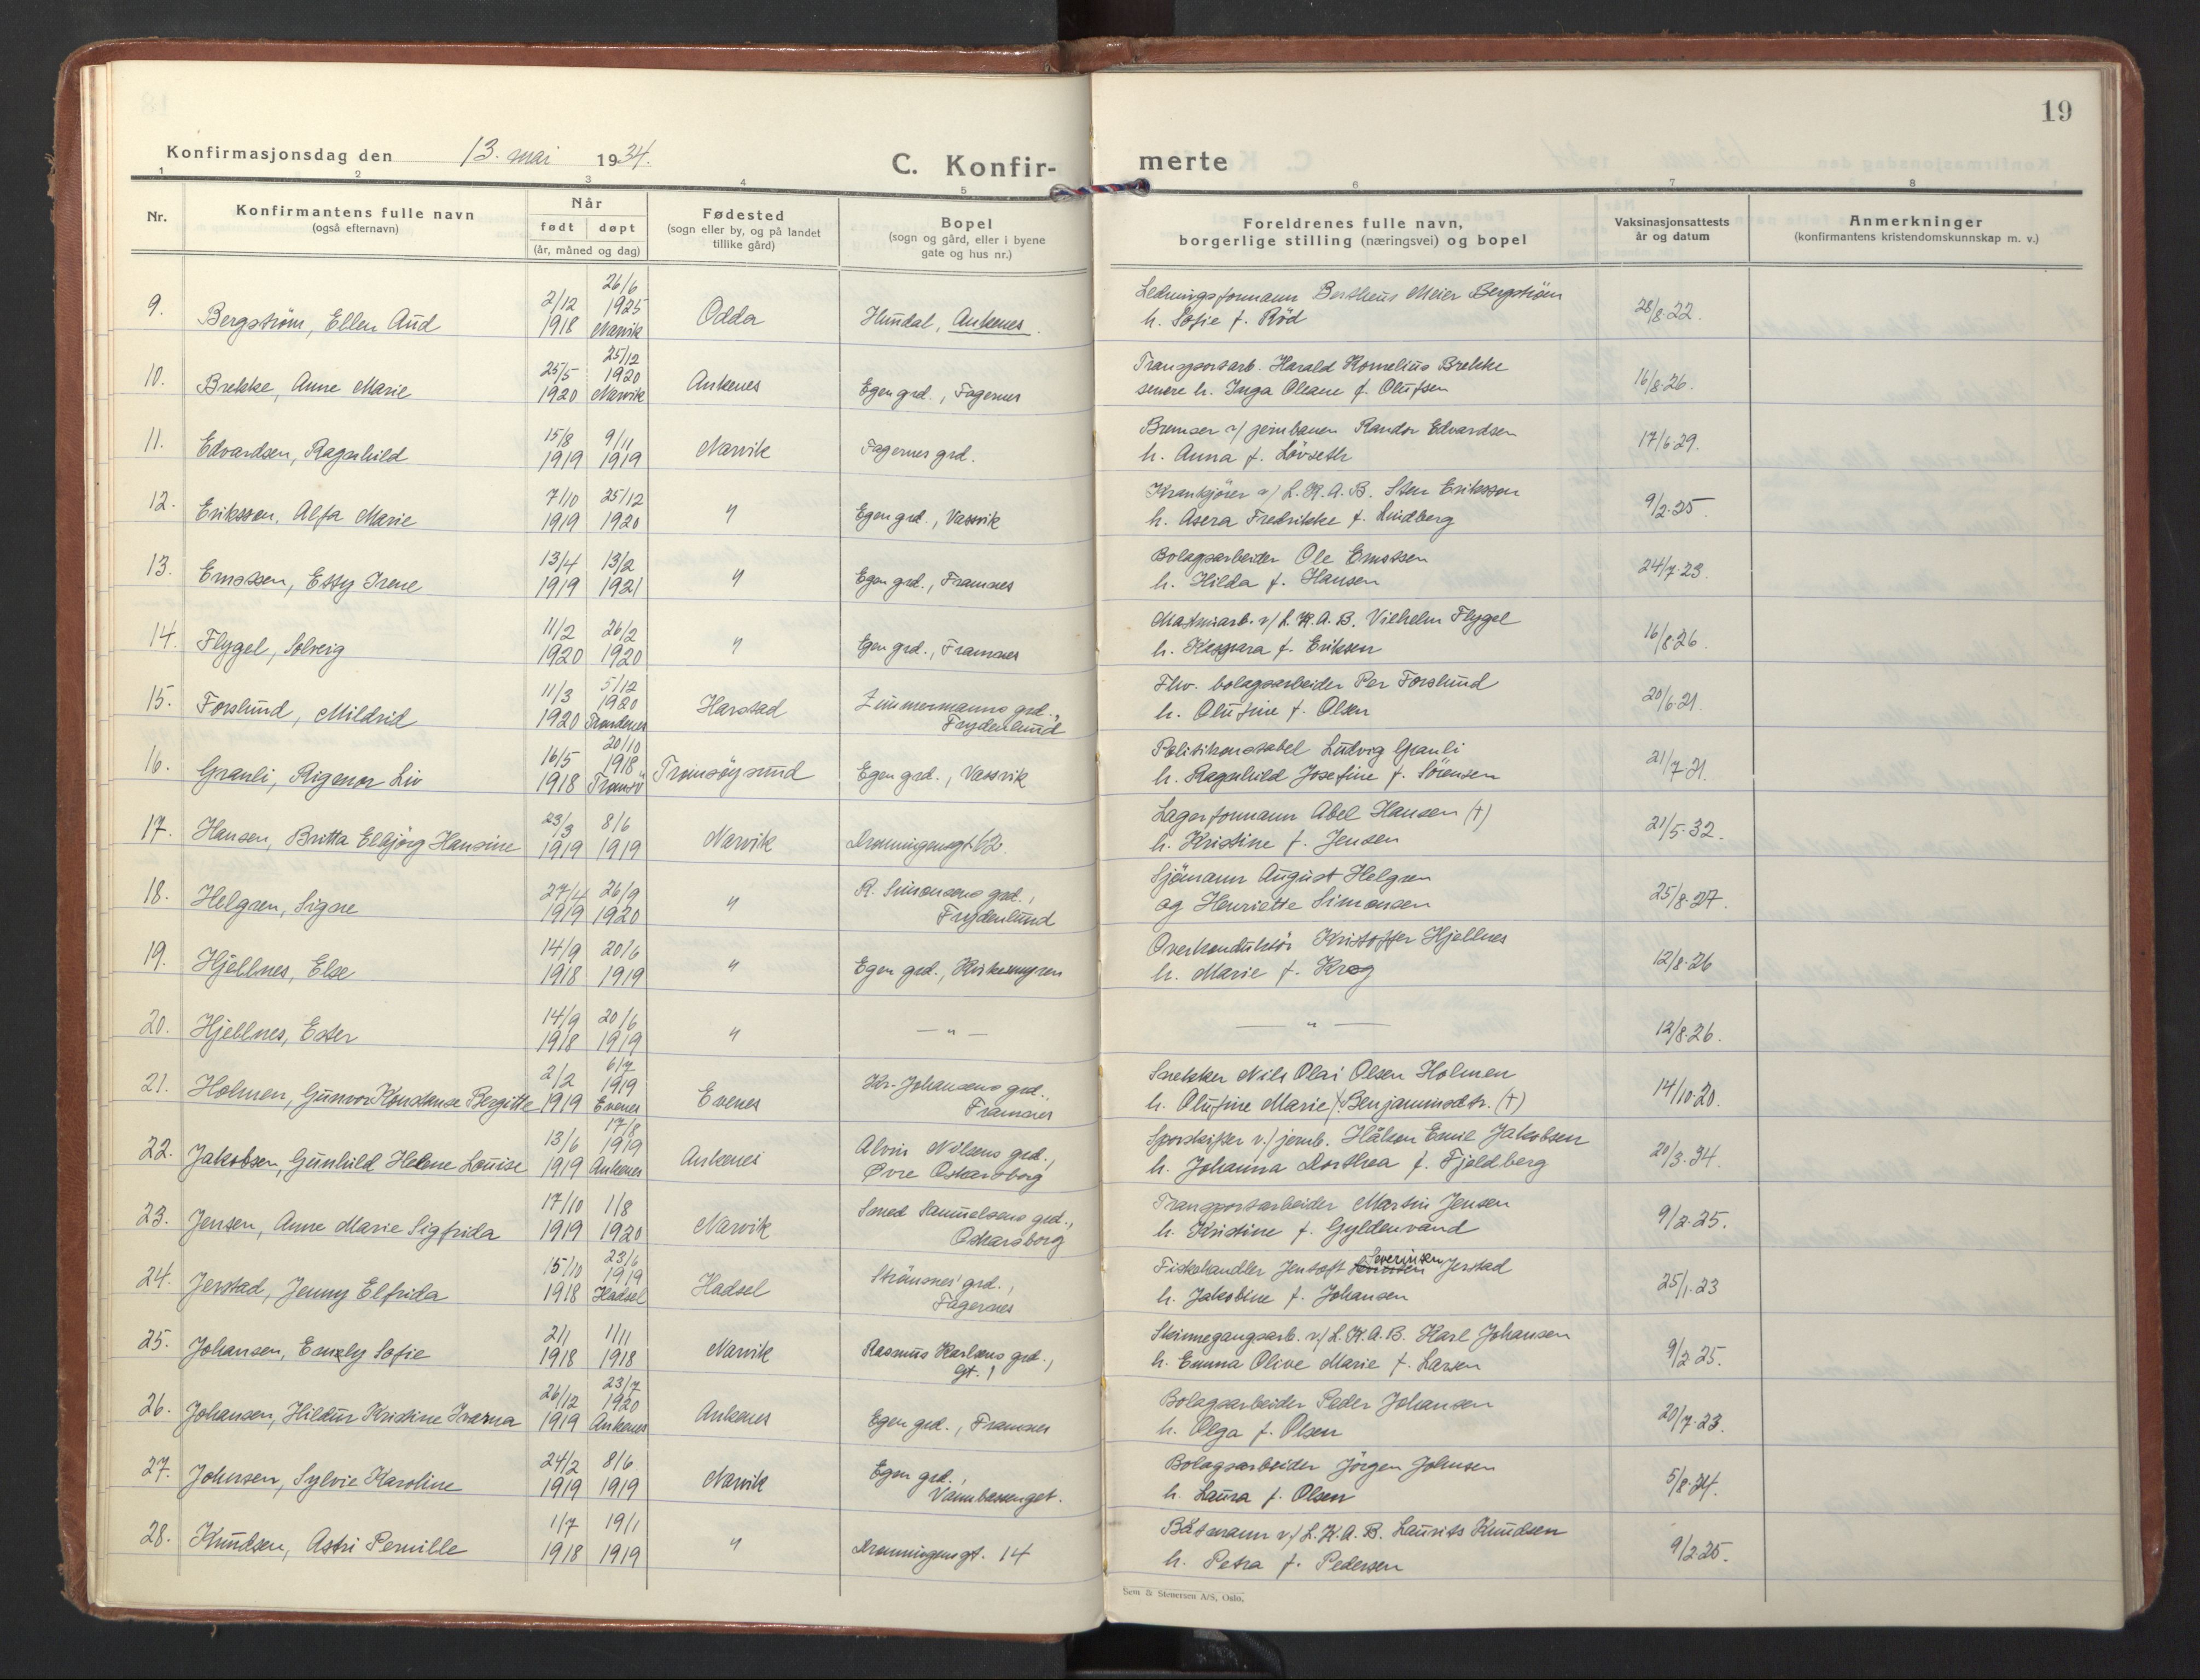 19
Konfirmasjonsdag den 13. mai 1934.
C. Konfir-
merte
1 2 3 4 5 6 7 8
Nr.
Konfirmantens fulle navn
(også efternavn)
Når
født døpt
(år, måned og dag)
Fødested
(sogn eller by, og på landet
tillike gård)
Bopel
(sogn og gård, eller i byene
gate og hus nr.)
Foreldrenes fulle navn,
borgerlige stilling (næringsvei) og bopel
Vaksinasjonsattests
år og datum
Anmerkninger
(konfirmantens kristendomskunnskap m. v.)
9. Bergström, Ellen Aud
2/12 1918
26/6 1925 Narvik
Odda
Hundal, Ankenes.
Ledningsformann Bertheus Meier Bergström
h. Sofie f. Röd
28/8.22.
10. Brekke, Anne Marie
25/5 1920
25/12 1920 Narvik
Ankenes
Egen grd., Fagernes
Transportarb. Harald Kornelius Brekke
senere h. Inga Oleane f. Olufsen
16/8.26.
11. Edvardsen, Ragnhild
15/8 1919
9/11 1919
Narvik
Fagernes grd.
Bremser v/ jernbanen Randor Edvardsen
h. Anna f. Lövseth
17/6.29.
12. Eriksson, Alfa Marie
7/10 1919
25/12 1920
"
Egen grd., Vassvik
Krankjörer v/ L.K.A.B. Sten Eriksson
h. Asera Fredrikke f. Lindberg
9/2.25.
13. Ernstsen, Etty Irene
13/4 1919
13/2 1921
"
Egen grd., Framnes
Bolagsarbeider Ole Ernstsen
h. Hilda f. Hansen
24/7.23.
14. Flygel, Solveig
11/2 1920
26/2 1920
"
Egen grd., Framnes
v/ L.K.A.B. Vilhelm Flygel
h. Kaspara f. Eriksen
16/8.26.
15. Forslund, Mildrid
11/3 1920
5/12 1920 Trondenes
Harstad
Zimmermanns grd.,
Frydenlund
Fhv. bolagsarbeider Per Forslund
h. Olufine f. Olsen
20/6.21.
16. Granli, Rigmor Liv
16/5 1918
20/10 1918 Tromsö
Tromsöysund
Egen grd., Vassvik
Politikonstabel Ludvig Granli
h. Ragnhild Josefine f. Sörensen
21/7.21.
17. Hansen, Britta Elbjörg Hansine
23/3 1919
8/6 1919
Narvik
Dronningensgt. 62.
Lagerformann Abel Hansen (†)
h. Kristine f. Jensen
21/5.32.
18. Helgren, Signe
27/4 1919
26/9 1920
"
R. Simonsens grd.,
Frydenlund
Sjömann August Helgren
og Henriette Simonsen
25/8.27.
19. Hjellnes, Else
14/9 1918
20/6 1919
"
Egen grd., Kirkemyren
Overkonduktör Kristoffer Hjellnes
h. Marie f. Krog
12/8.26
20. Hjellnes, Ester
14/9 1918
20/6 1919
"
— " —
— " —
12/8.26.
21. Holmen, Gunvor Konstanse Bergitte
2/2 1919
6/7 1919 Evenes
Evenes
Kr. Johansens grd.,
Framnes
Snekker Nils Olai Olsen Holmen
h. Olufine Marie f. Benjaminsdtr. (†)
14/10.20.
22. Jakobsen, Gunhild Helene Louise
13/6 1919
17/8 1919 Ankenes
Ankenes
Alvin Nilsens grd.,
Øvre Oskarsborg
Sporskifter v./ jernb. Håkon Emil Jakobsen
h. Johanna Dorthea f. Fjeldberg
20/3.34.
23. Jensen, Anne Marie Sigfrida
17/10 1919
1/8 1920
Narvik
Smed Samuelsens grd.,
Oskarsborg
Transportarbeider Martin Jensen
h. Kristine f. Gyldenvand
9/2.25.
24. Jerstad, Jenny Elfrida
15/10 1918
23/6 1919 Hadsel
Hadsel
Strömsnes' grd.,
Fagernes
Fiskehandler Jentoft Severinsen Jerstad
h. Jakobine f. Johansen
25/1.23
25. Johansen, Emely Sofie
2/1 1918
1/11 1918
Narvik
Rasmus Karlsens grd.,
gt. 1
Skinnegangsarb. v./ L.K.A.B. Karl Johansen
h. Emma Olive Marie f. Larsen
9/2 25.
26. Johansen, Hildur Kristine Ivarna
26/12 1919
23/7 1920 Ankenes
Ankenes
Egen grd., Framnes
Bolagsarbeider Peder Johansen
h. Olga f. Olsen
20/7.23.
27. Johnsen, Sylvie Karoline
24/2 1919
8/6 1919
Narvik
Egen grd.,
Vannbassenget.
Bolagsarbeider Jörgen Johnsen
h. Laura f. Olsen
5/8.24.
28. Knudsen, Astri Pernille
1/7 1918
19/1 1919
"
Dronningensgt. 14
Båtmann v./ L.K.A.B. Laurits Knudsen
h. Petra f. Pedersen
9/2.25.
Sem & Stenersen A/S, Oslo.